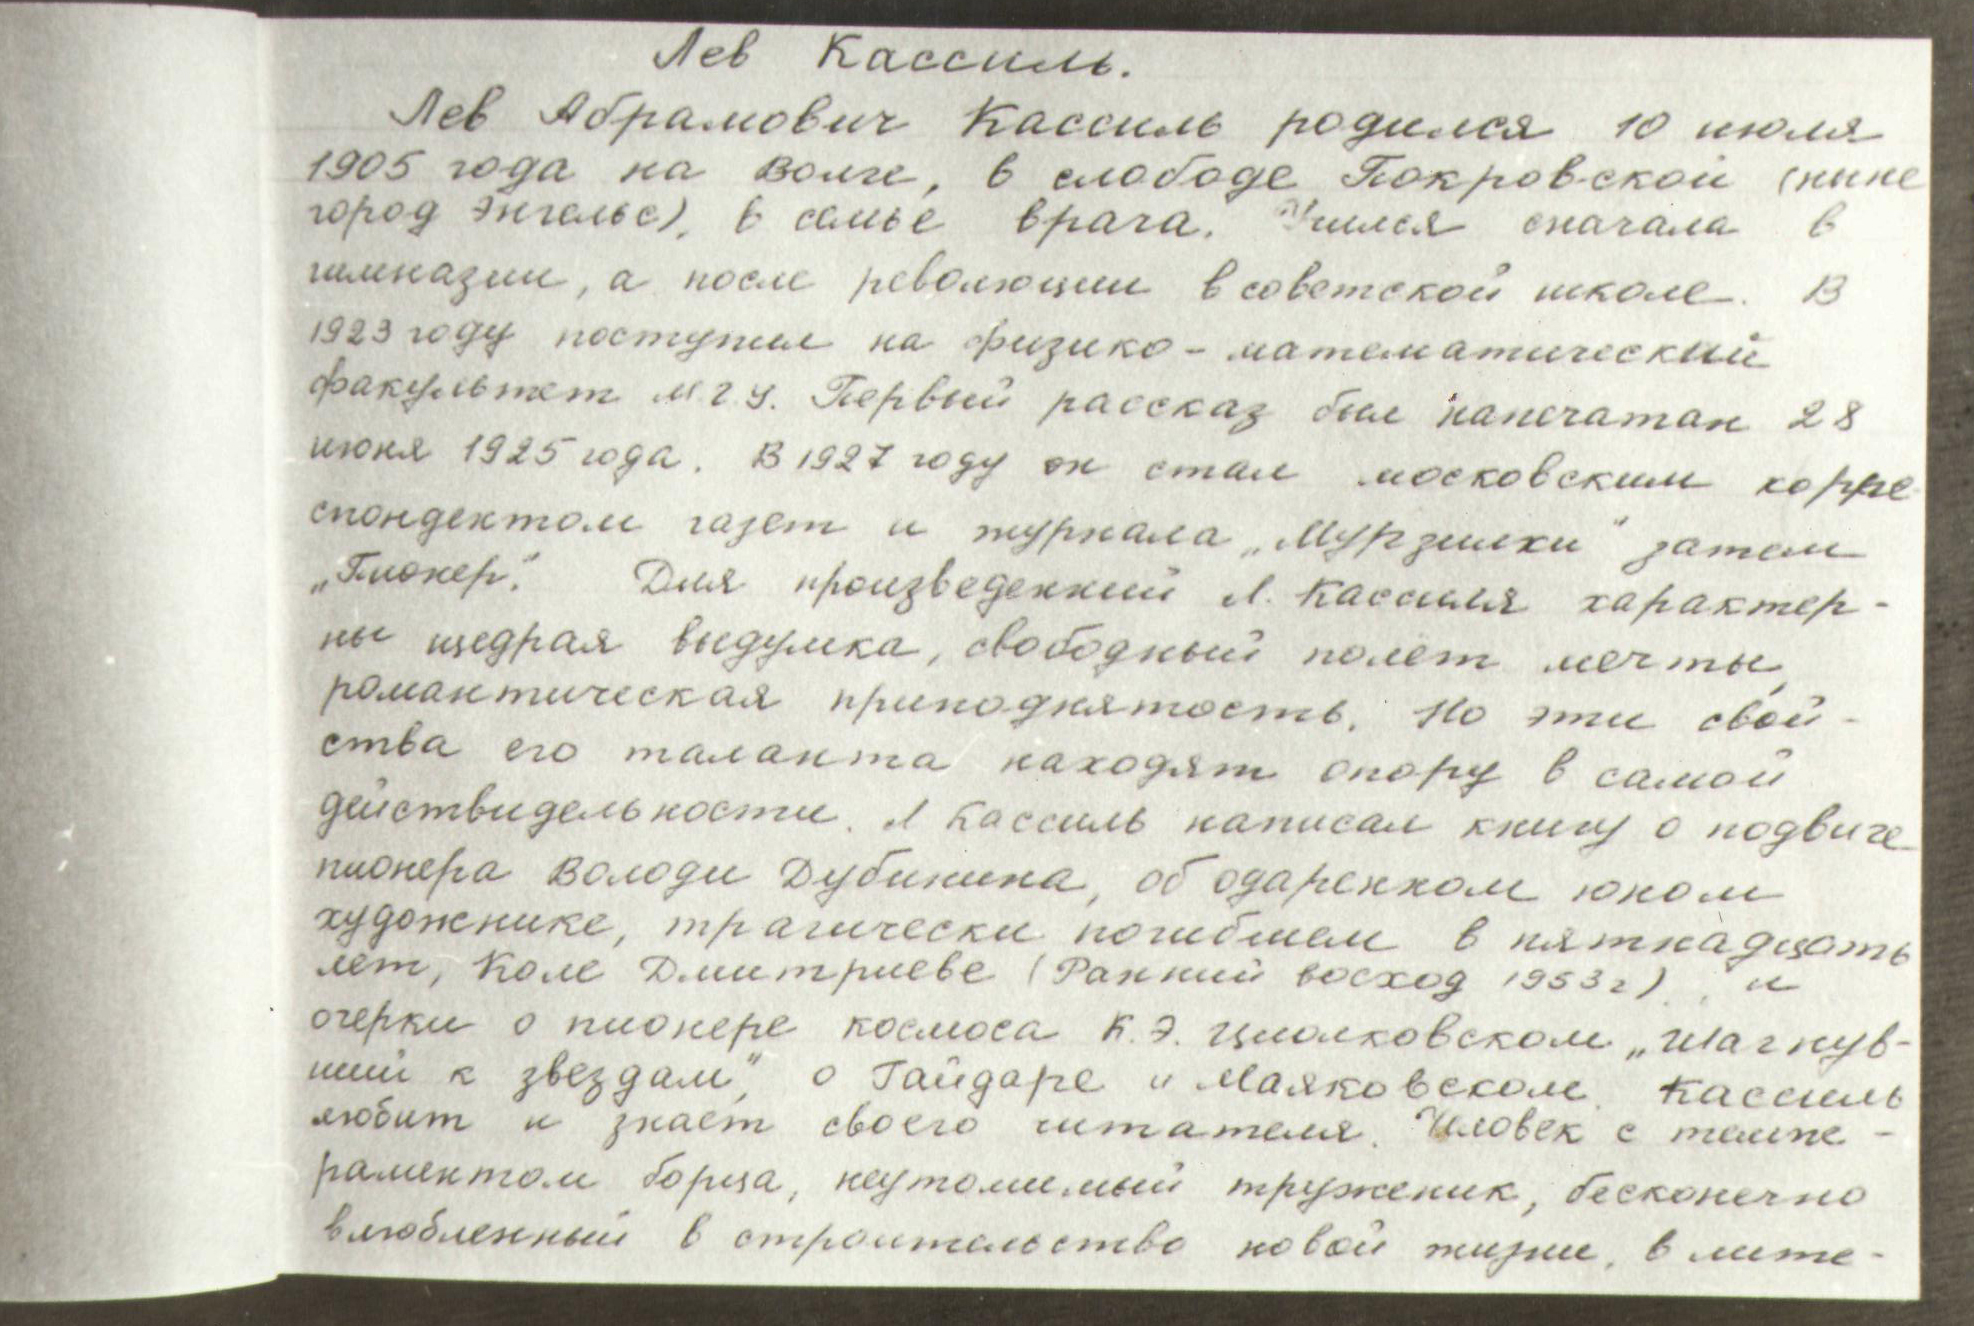 Лев Кассиль.
Лев Абрамович Кассиль родился 10 июля
1905 года на Волге, в слободе Покровской (ныне
город Энгельс), в семье врача. Учился сначала в
гимназии, а после революции в советской школе. В
1923 году поступил на физико-математический
факультет М.Г.У. Первый рассказ был напечатан 28
июня 1925 года. В 1927 году он стал московским корре-
спондентом газет и журнала „Мурзилки" затем
„Пионер". Для произведенний Л. Кассиля характер-
ны щедрая выдумка, свободный полет мечты,
романтическая приподнятость. Но эти свой-
ства его таланта находят опору в самой
действидельности. Л Кассиль написал книгу о подвиге
пионера Володи Дубинина, об одаренном юном
художнике, трагически погибшем в пятнадцать
лет, Коле Дмитриеве (Ранний восход 1953г), и
очерки о пионере космоса К.Э. Циолковском „Шагнув-
ший к звездам", о Гайдаре и Маяковском. Кассиль
любит и знает своего читателя. Человек с темпе-
раментом борца, неутомимый труженик, бесконечно
влюбленный в строительство новой жизни, в лите-